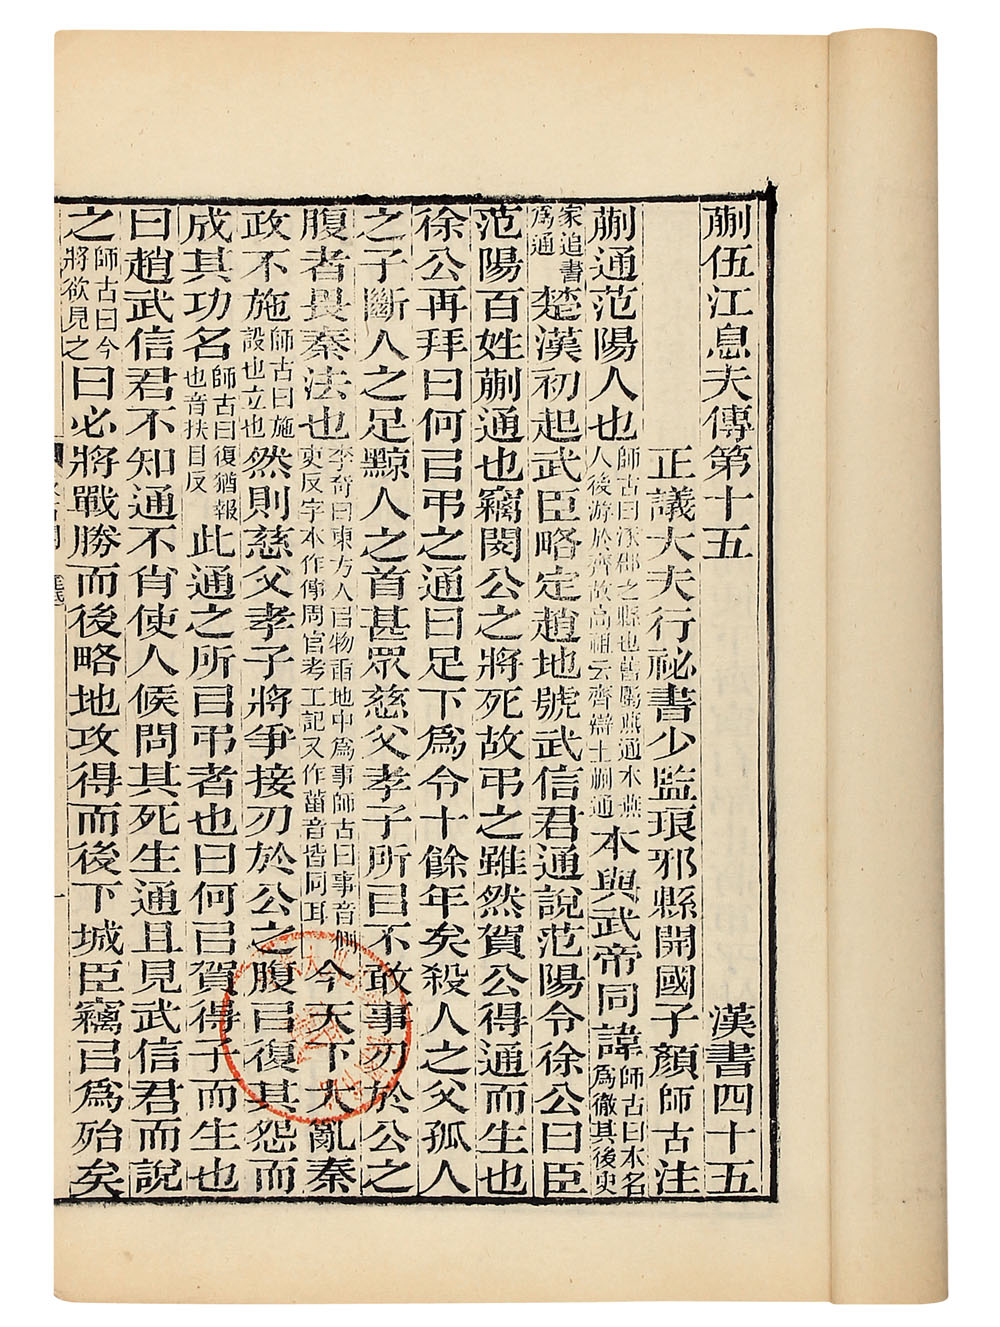 蒯伍江息夫傳第十五　漢書四十五
正議大夫行祕書少監琅邪縣開國子顏師古注
蒯通范陽人也師古曰涿郡之縣也舊屬燕通本燕人後游於齊故高祖云齊辯士蒯通本與武帝同諱師古曰本名爲徹其後史
家追書爲通楚漢初起武臣略定趙地號武信君通說范陽令徐公曰臣
范陽百姓蒯通也竊閔公之將死故弔之雖然賀公得通而生也
徐公再拜曰何㠯弔之通曰足下爲令十餘年矣殺人之父孤人
之子斷人之足黥人之首甚眾慈父孝子所㠯不敢事刃於公之
腹者畏秦法也李奇曰東方人㠯物臿地中爲事師古曰事音側吏反字本作傳周官考工記又作菑音皆同耳今天下大亂秦
政不施師古曰施設也立也然則慈父孝子將爭接刃於公之腹㠯復其怨而
成其功名師古曰復猶報也音扶目反此通之所㠯弔者也曰何㠯賀得子而生也
曰趙武信君不知通不肖使人候問其死生通且見武信君而說
之師古曰今將欲見之曰必將戰勝而後略地攻得而後下城臣竊㠯爲殆矣
一